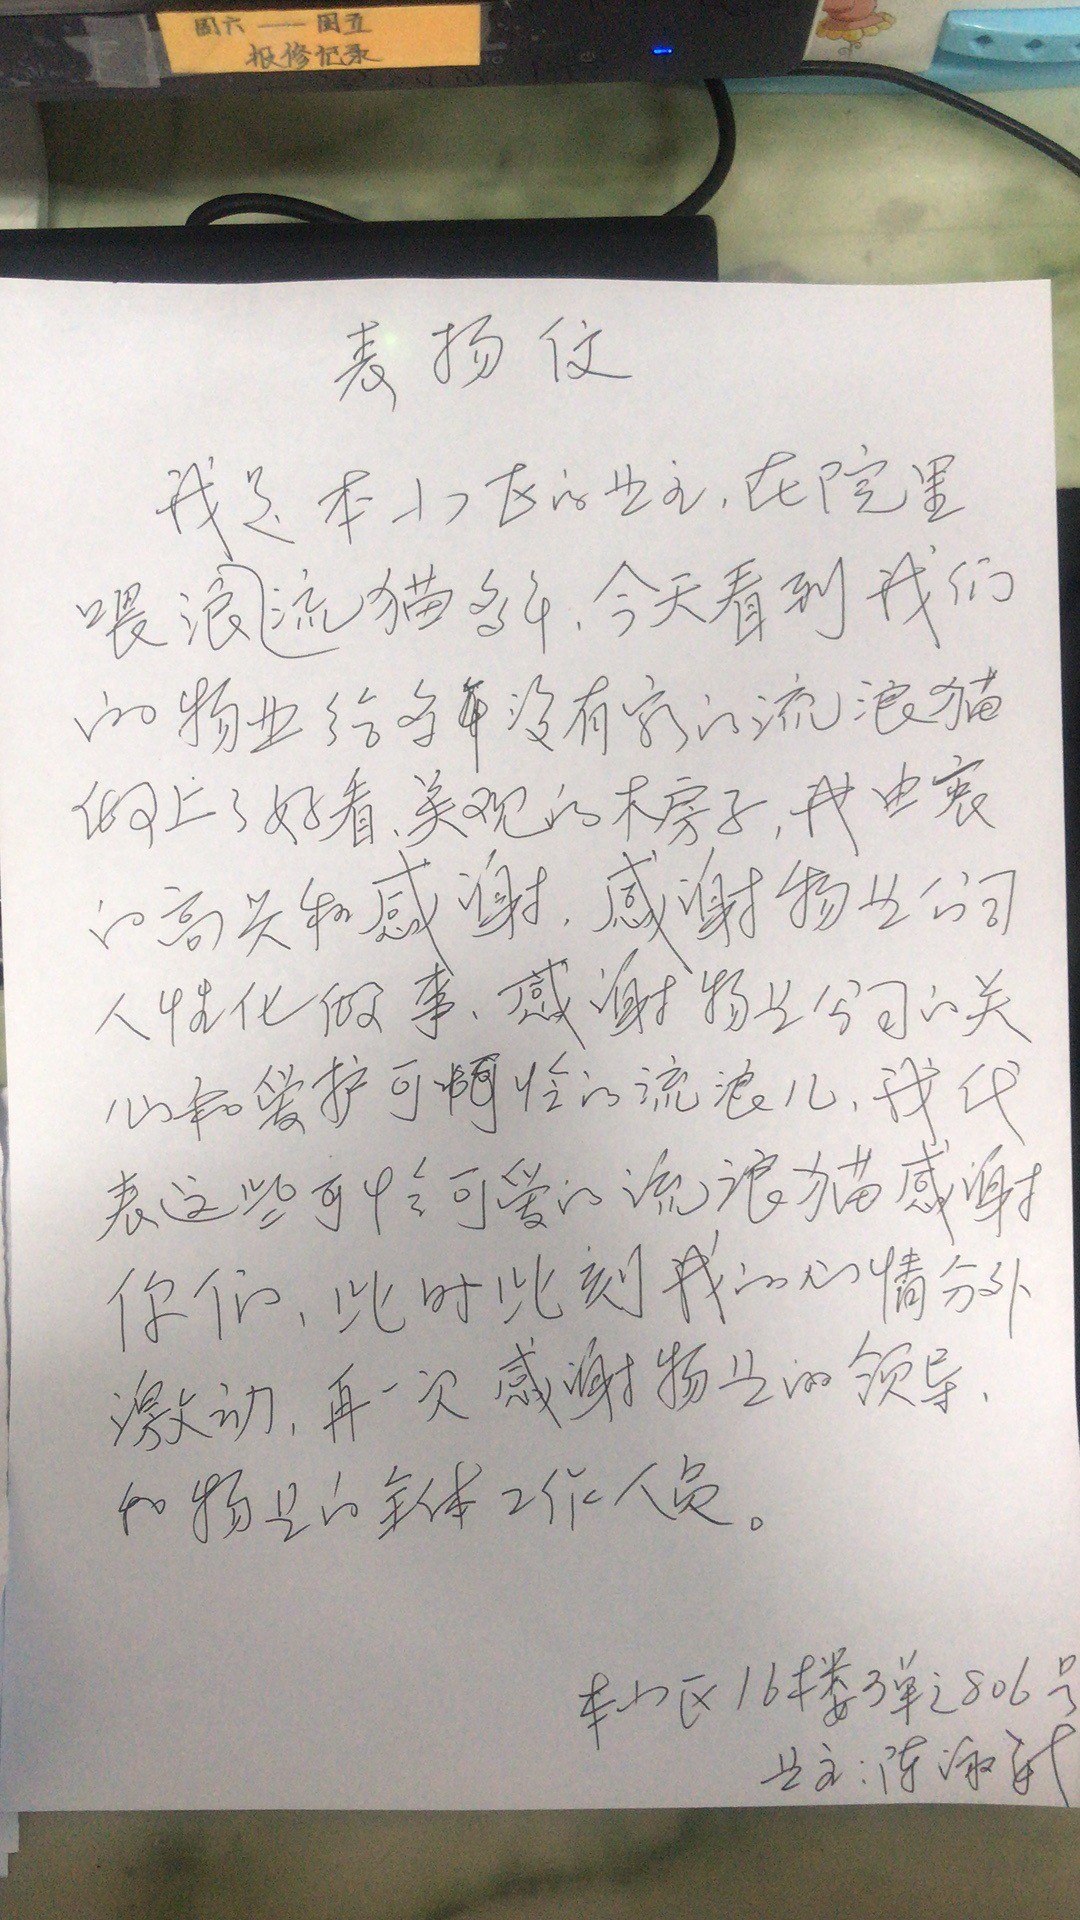 园六——园五
报修记录
表扬信
我是本小区的业主,在院里
喂浪流猫多年,今天看到我们
的物业给多年没有家的流浪猫
做上了好看、美观的木房子,我由衷
的高兴和感谢,感谢物业公司
人性化做事、感谢物业公司的关
心和爱护可怜的流浪儿,我代
表这些可怜可爱的流浪猫感谢
你们,此时此刻我的心情分外
激动,再一次感谢物业的领导、
和物业的全体工作人员。
本小区16楼3单元806号
业主:陈淑